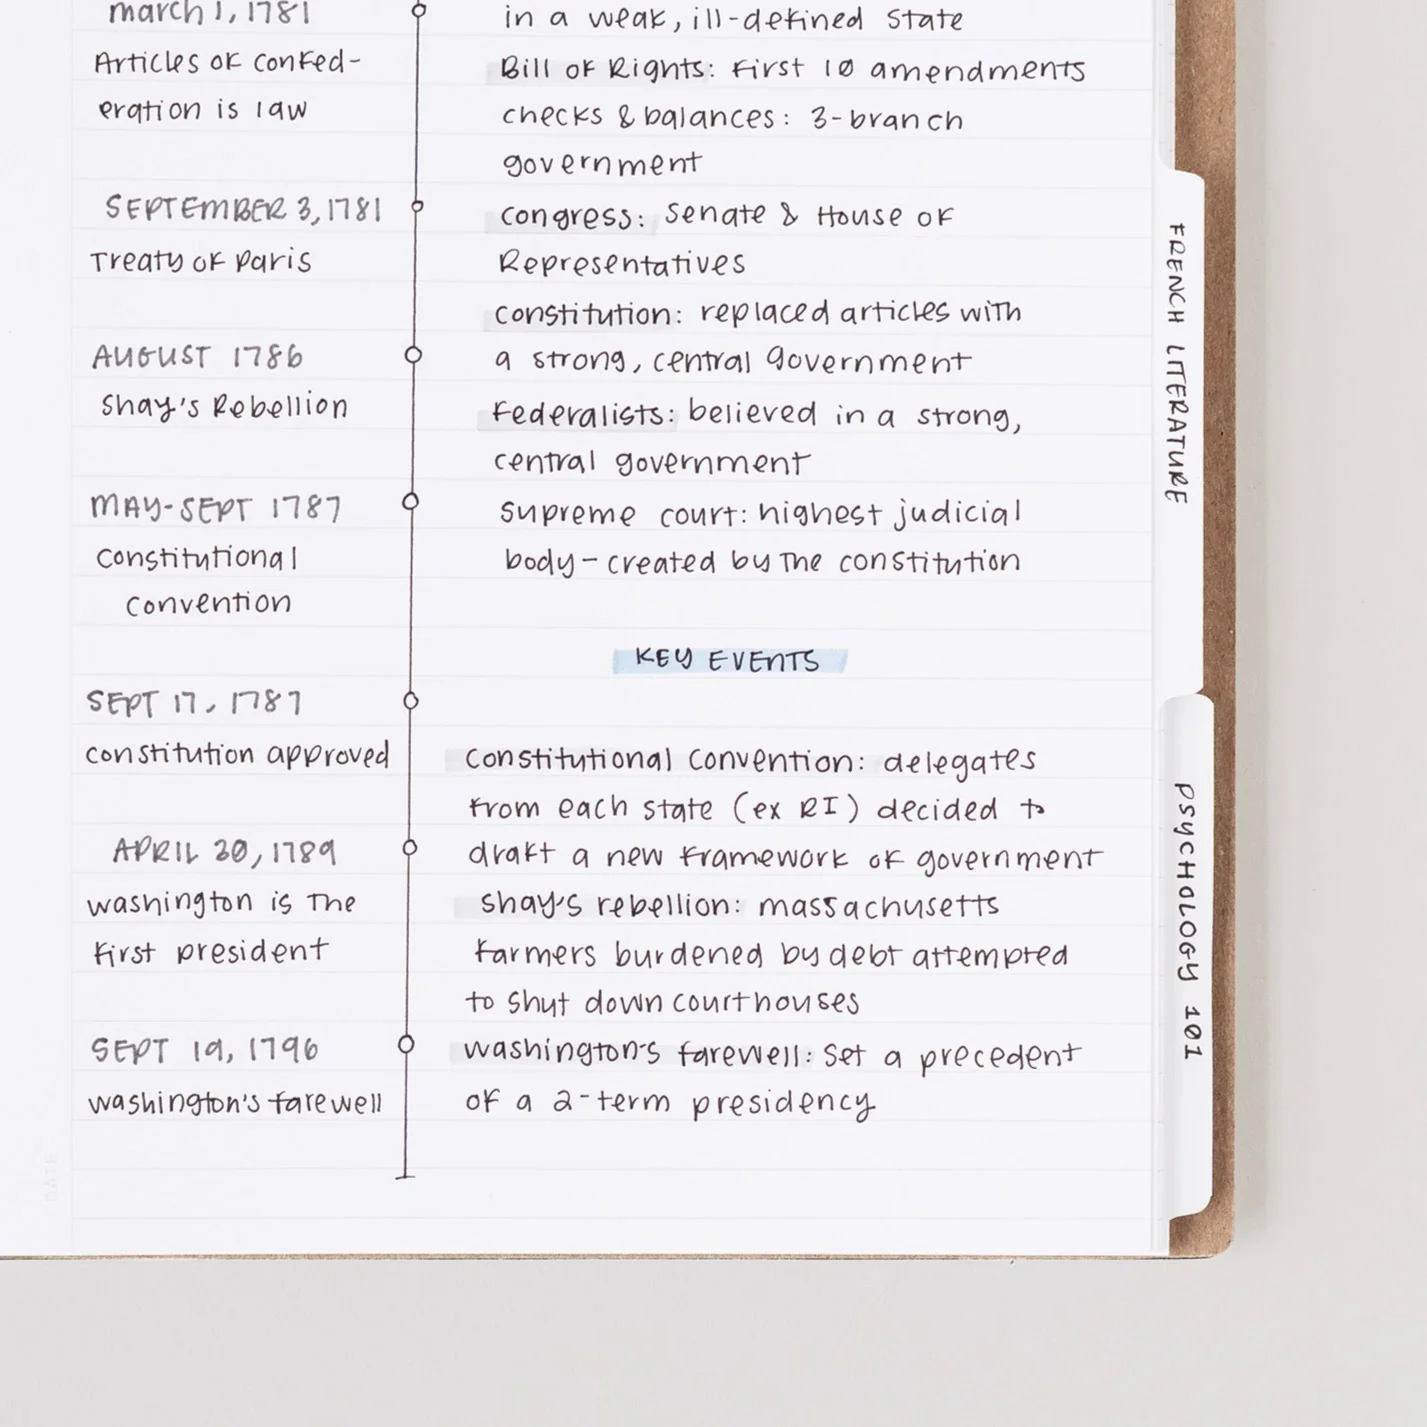 march 1, 1781
Articles of confed-
eration is law
SEPTEMBER 3, 1781
Treaty of Paris
AUGUST 1786
Shay's Rebellion
MAY-SEPT 1787
constitutional
convention
SEPT 17, 1787
constitution approved
APRIL 30, 1789
washington is the
first president
SEPT 19, 1796
washington's farewell
in a weak, ill-defined state
Bill of Rights: first 10 amendments
checks & balances: 3-branch
government
congress: Senate & House of
Representatives
constitution: replaced articles with
a strong, central government
Federalists: believed in a strong,
central government
supreme court: highest judicial
body - created by the constitution
KEY EVENTS
constitutional convention: delegates
from each state (ex RI) decided to
draft a new framework of government
shay's rebellion: massachusetts
farmers burdened by debt attempted
to shut down courthouses
washington's farewell: set a precedent
of a 2-term presidency
FRENCH LITERATURE
PSYCHOLOGY 101